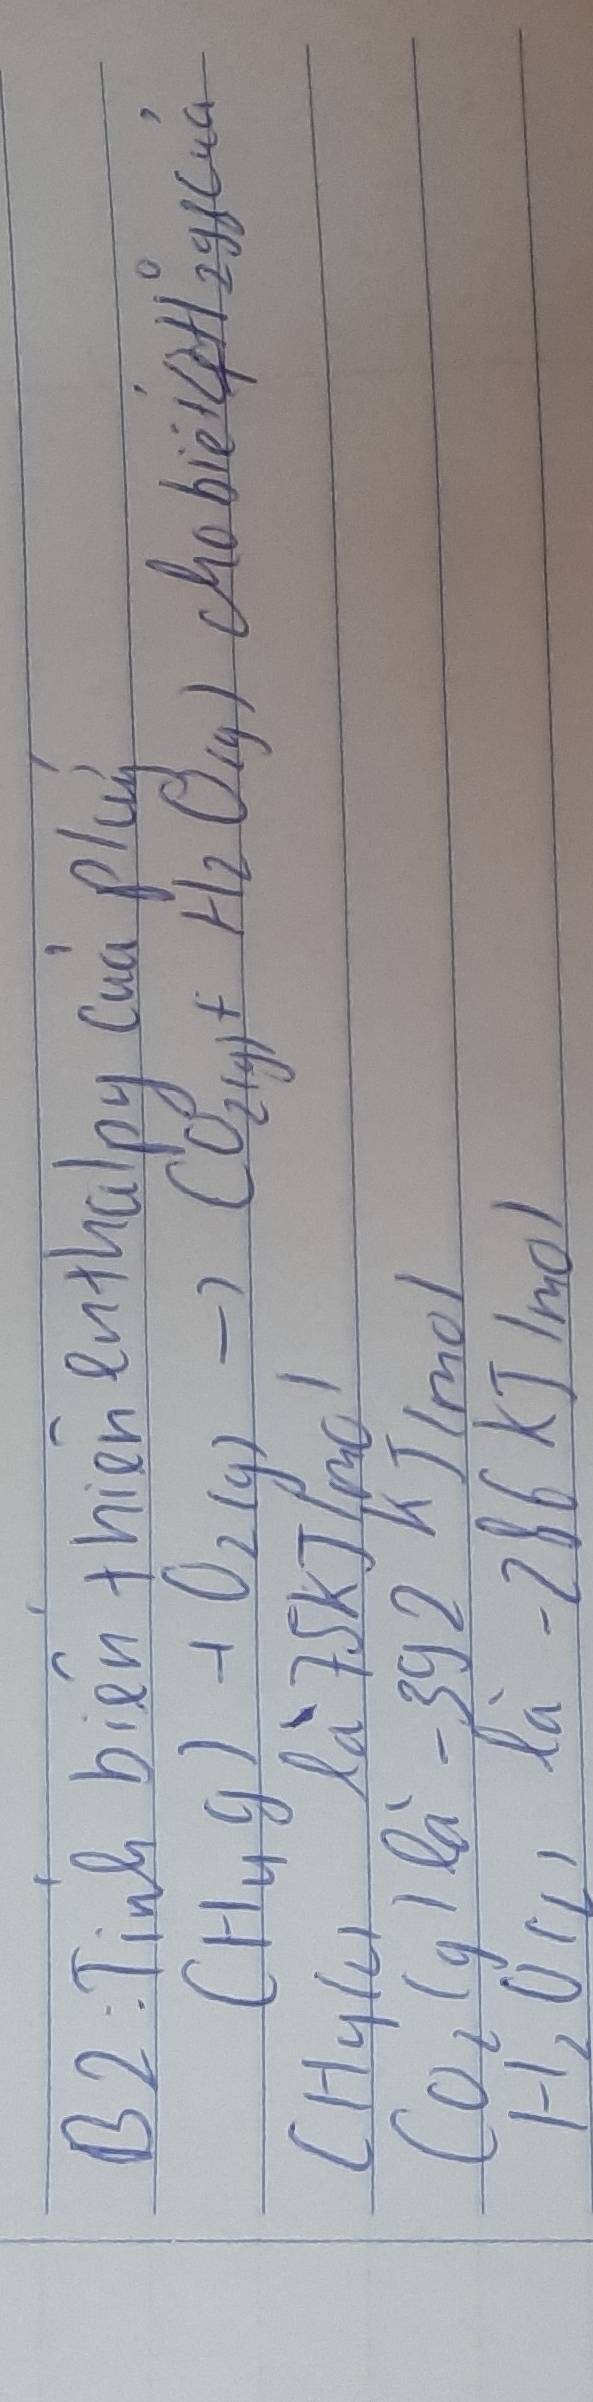 B2: Tính biến thiên enthalpy của plứ
CH4(g) + O2(g) → CO2(g) + H2O(g) cho biết ΔfH°298 của
CH4(g) là 75 kJ/mol
CO2(g) là -392 kJ/mol
H2O(l) là -286 kJ/mol